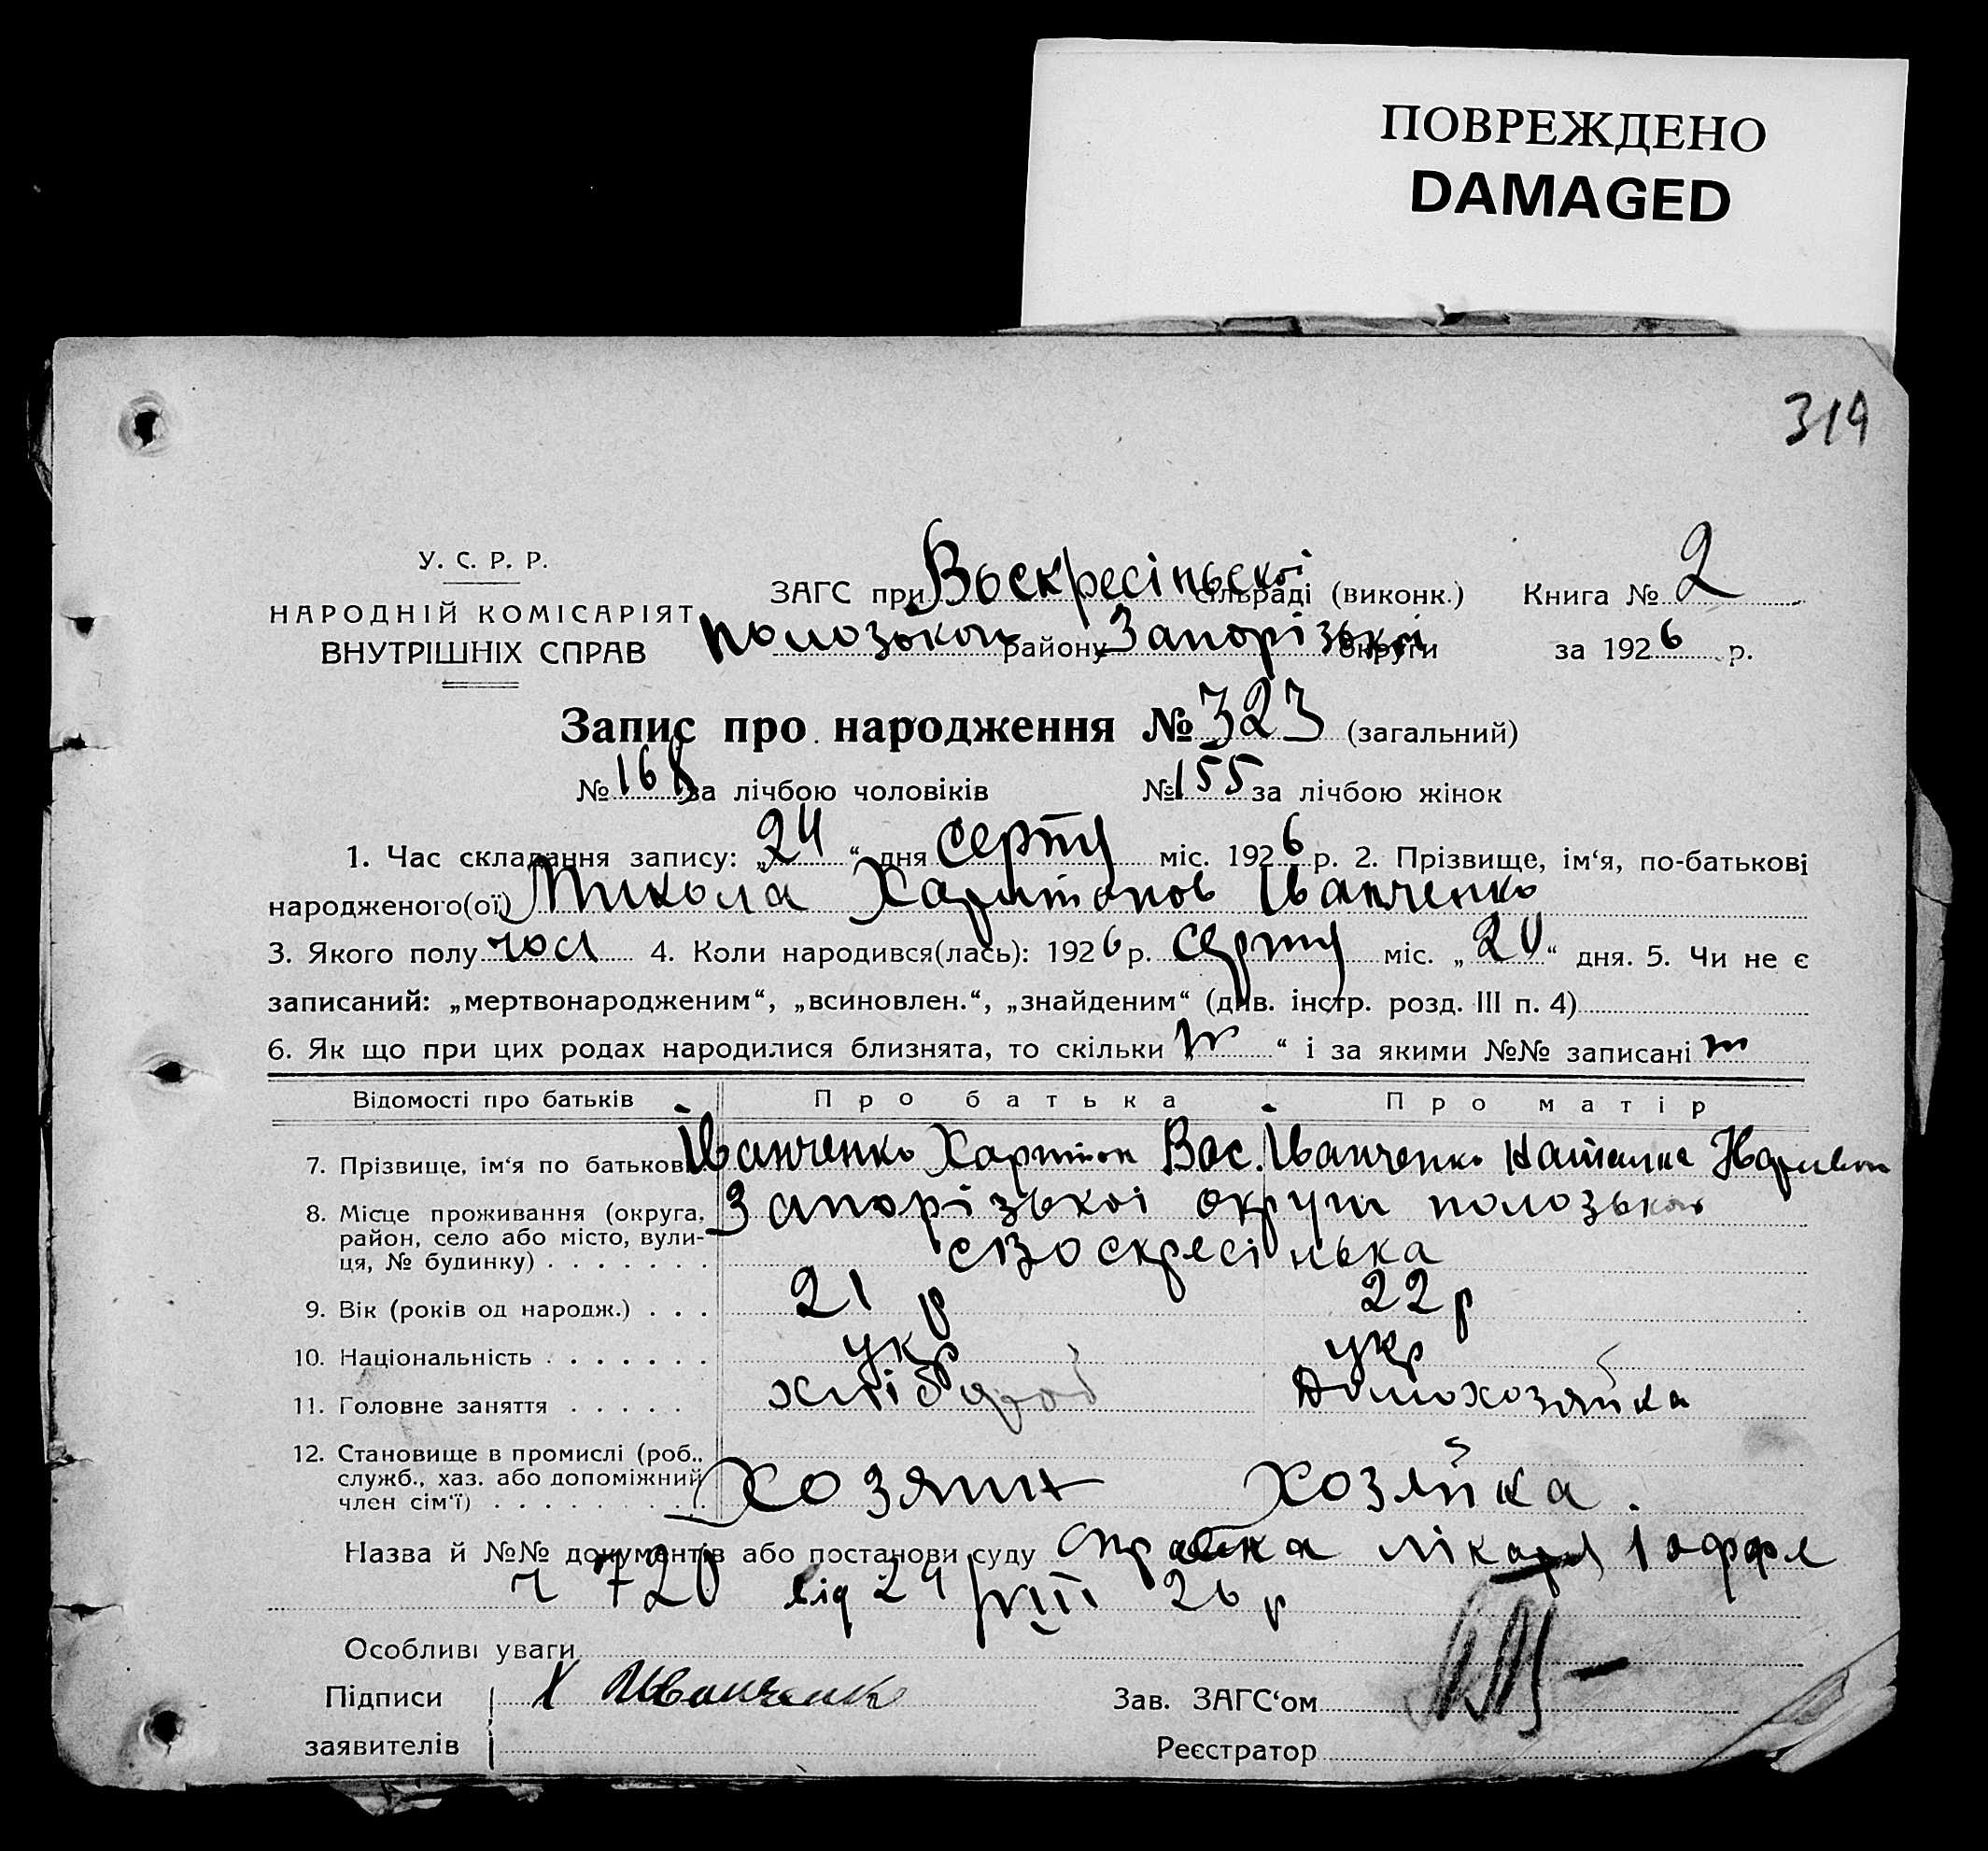 ПОВРЕЖДЕНО
DAMAGED
319
У. С. Р. Р.
НАРОДНІЙ КОМІСАРІЯТ
ВНУТРІШНІХ СПРАВ
ЗАГС при Воскресіньскоі сільраді (виконк.) Книга № 2
району Запорізькоі округи за 1926 р.
Запис про народження № 323 (загальний)
№ 168 за лічбою чоловіків № 155 за лічбою жінок
1. Час складання запису: „24“ дня серпня міс. 1926 р. 2. Прізвище, ім‘я, по-батькові
народженого(ої) Микола Харитонов Іванченко
3. Якого полу чол 4. Коли народився(лась): 1926 р. серпня міс. „20“ дня. 5. Чи не є
записаний: „мертвонародженим“, „всиновлен.“, „знайденим“ (див. інстр. розд. III п. 4)
6. Як що при цих родах народилися близнята, то скільки „ “ і за якими №№ записані
Відомості про батьків Про батька Про матір
7. Прізвище, ім‘я по батькові Іванченко Харитон Вас. Іванченко Наталка
8. Місце проживання (округа, Запорізькоі округи полозького
район, село або місто, вули- с Воскресінька
ця, № будинку)
9. Вік (років од народж.) 21 р 22 р
10. Національність укр укр
11. Головне заняття хлібороб Домохозяйка
12. Становище в промислі (роб.,
служб., хаз. або допоміжний Хозяин Хозяйка.
член сім‘ї)
Назва й №№ документів або постанови суду справка лікаря Іоффе
ч 720 від 24/VIII 26 р
Особливі уваги
Підписи Х Иванченк Зав. ЗАГС‘ом
заявителів Реєстратор